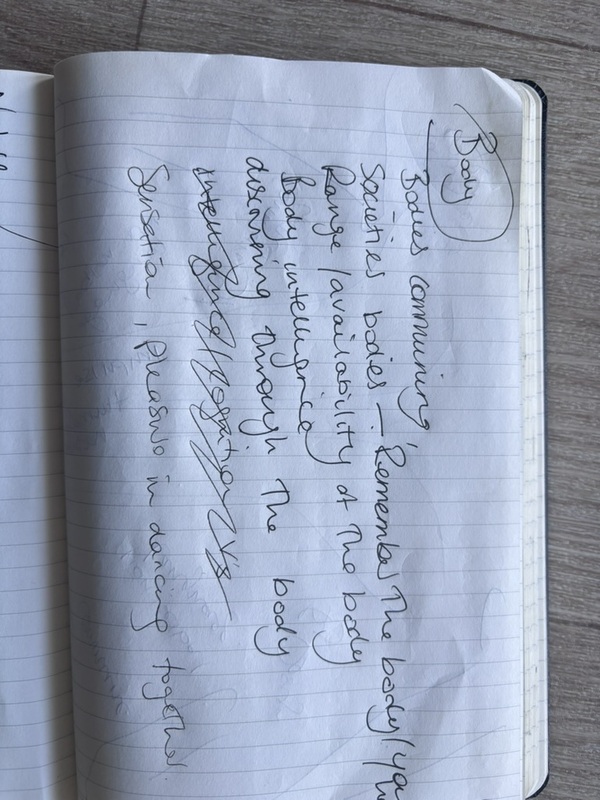 Body
Bodies communing,
Societies bodies – Remember the body/you
Range/availability of the body
Body intelligence
discovering through the body
Sensation, pleasure in dancing together